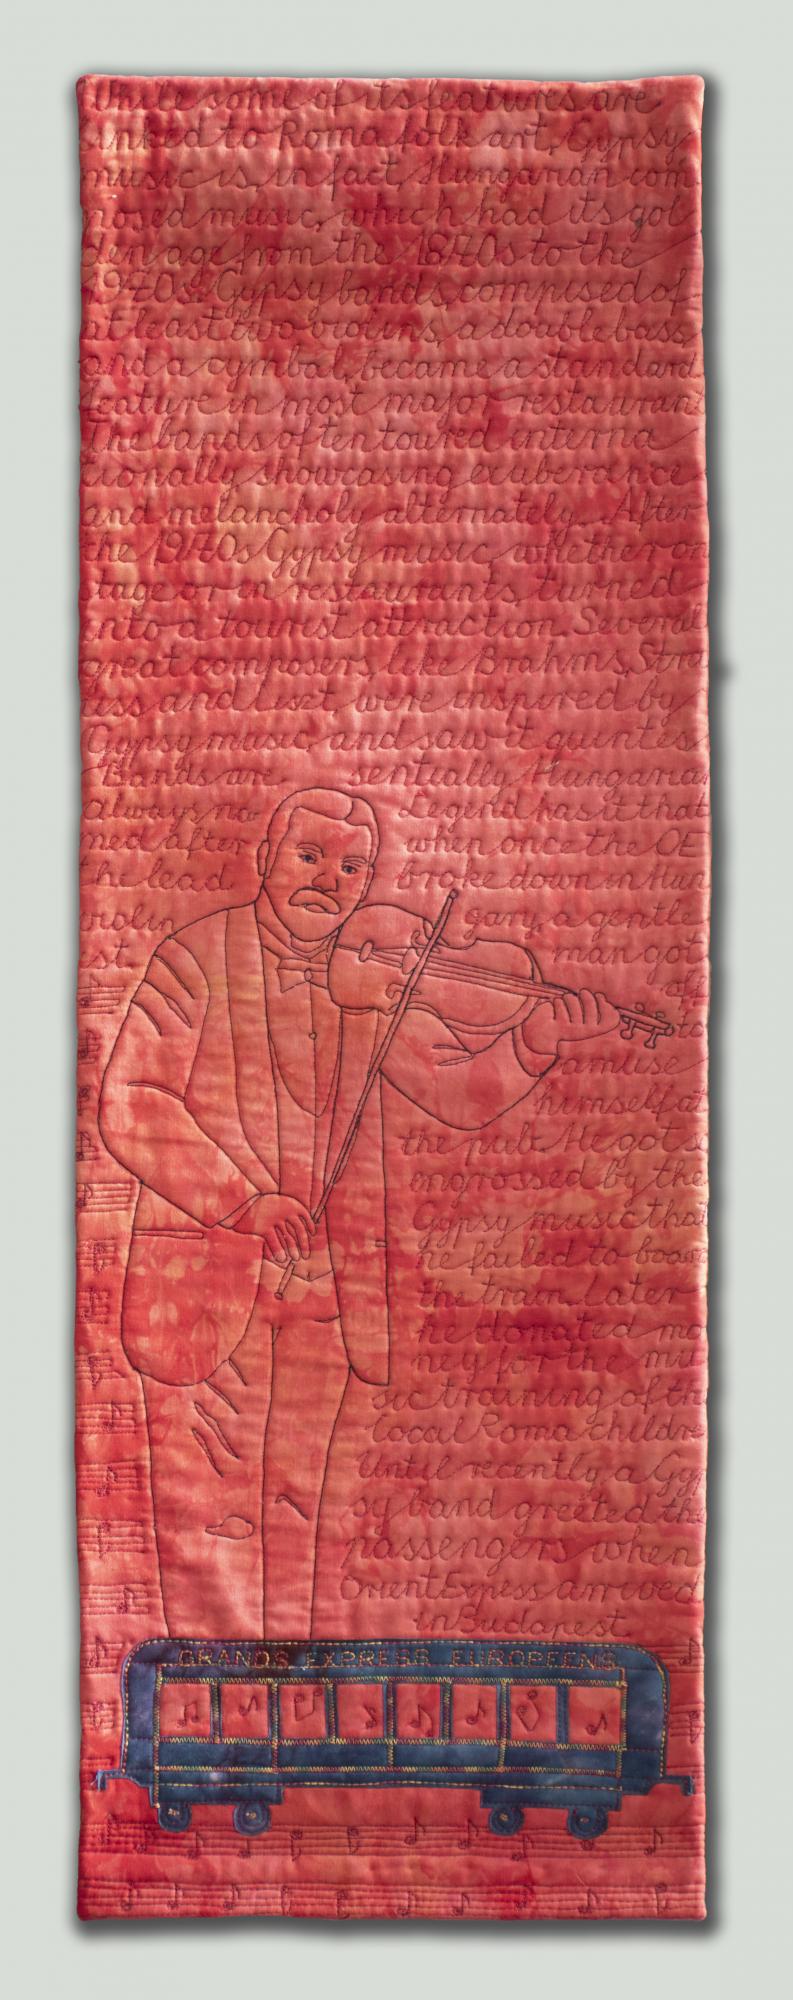 While some of its features are
linked to Roma folk art, Gypsy
music is, in fact, Hungarian com
posed music, which had its gol
den age from the 1870s to the
1920s. Gypsy bands, composed of
at least two violins, a double bass,
and a cymbal, became a standard
feature in most major restaurants
The bands often toured interna
tionally showcasing exuberance
and melancholy alternately. After
the 1970s Gypsy music, whether on
stage or in restaurants, turned
into a tourist attraction. Several
great composers, like Brahms, Stra
uss and Liszt were inspired by
Gypsy music, and saw it quintes
sentially Hungarian
Bands are
always na
med after
the lead
violin
ist
Legend has it that
when once the OE
broke down in Hun
gary, a gentle
man got
off
to
amuse
himself at
the pub. He got so
engrossed by the
Gypsy music that
he failed to board
the train. Later
he donated mo
ney for the mu
sic training of the
local Roma children
Until recently a Gyp
sy band greeted the
passengers when
Orient Express arrived
in Budapest.
GRANDS EXPRESS EUROPEENS